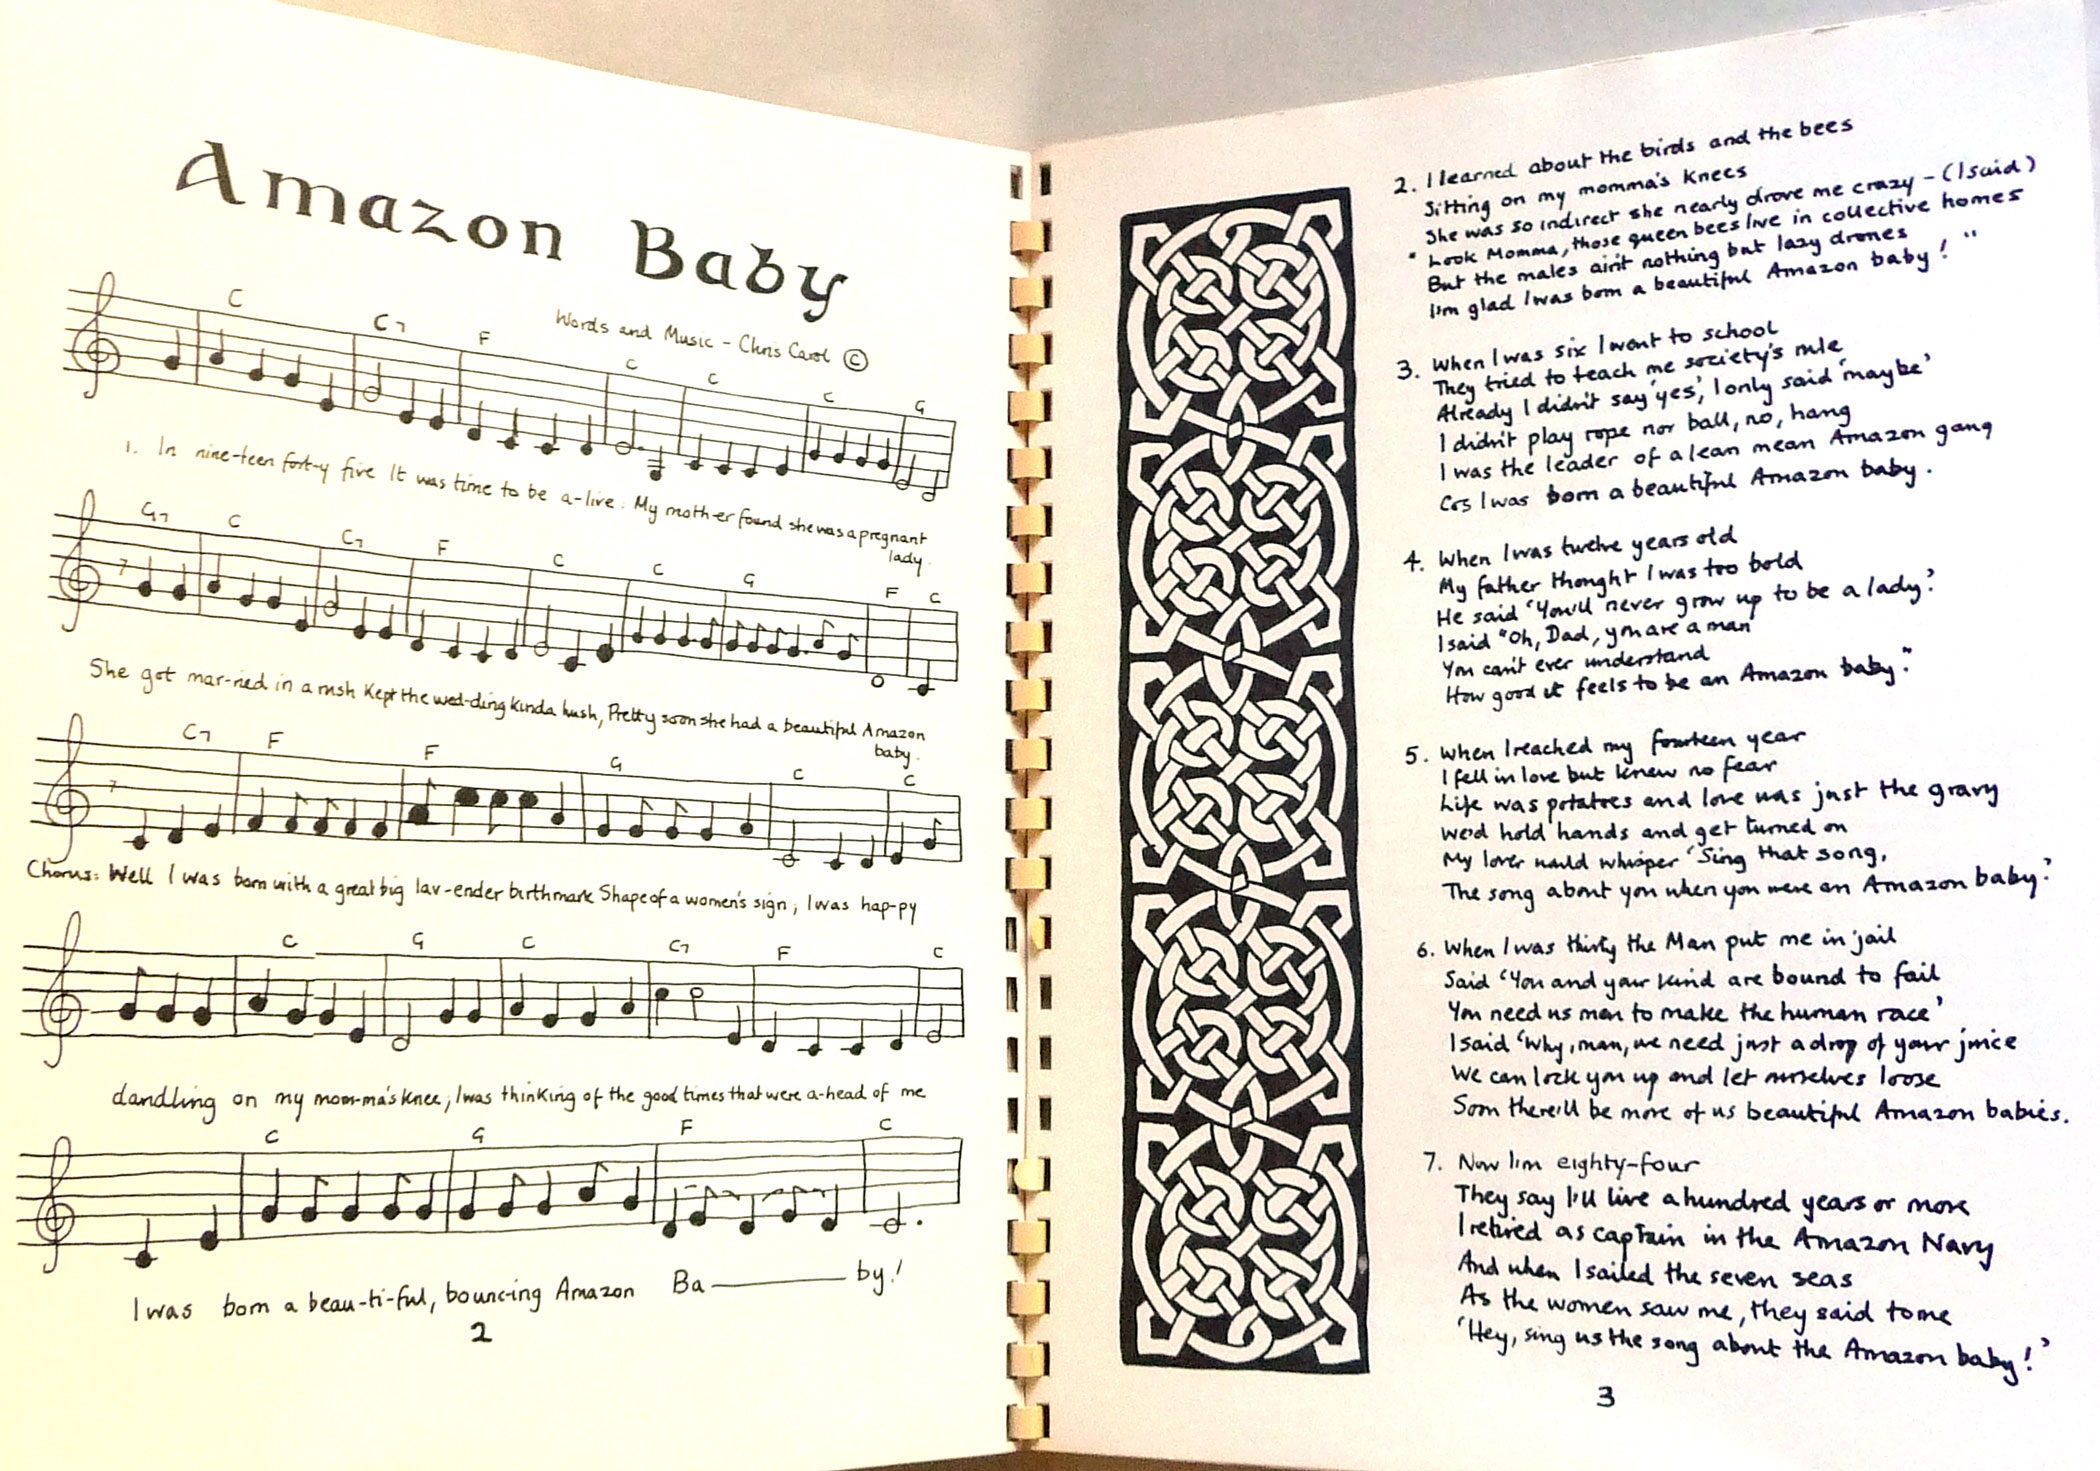 Amazon Baby
Words and Music - Chris Carol ©
C C7 F C C C G
1. In nine-teen fort-y five It was time to be a-live: My moth-er found she was a pregnant
lady.
G7 C C7 F C C G F C
She got mar-ried in a rush Kept the wed-ding kinda hush, Pretty soon she had a beautiful Amazon
baby.
C7 F F G C C
Chorus: Well I was born with a great big lav-ender birthmark Shape of a women's sign, I was hap-py
C G C C7 F C
dandling on my mom-ma's knee, I was thinking of the good times that were a-head of me
C G F C
I was born a beau-ti-ful, bounc-ing Amazon Ba———by!
2
2. I learned about the birds and the bees
Sitting on my momma's knees
She was so indirect she nearly drove me crazy - (I said)
" Look Momma, those queen bees live in collective homes
But the males ain't nothing but lazy drones
I'm glad I was born a beautiful Amazon baby! "
3. When I was six I went to school
They tried to teach me society's rule
Already I didn't say 'yes', I only said 'maybe'
I didn't play rope nor ball, no, hang
I was the leader of a lean mean Amazon gang
Cos I was born a beautiful Amazon baby.
4. When I was twelve years old
My father thought I was too bold
He said 'You'll never grow up to be a lady.'
I said "Oh, Dad, you are a man
You can't ever understand
How good it feels to be an Amazon baby."
5. When I reached my fourteen year
I fell in love but knew no fear
Life was potatoes and love was just the gravy
We'd hold hands and get turned on
My lover would whisper 'Sing that song,
The song about you when you were an Amazon baby.'
6. When I was thirty the Man put me in jail
Said 'You and your kind are bound to fail
You need us men to make the human race'
I said 'Why, man, we need just a drop of your juice
We can lock you up and let ourselves loose
Soon there'll be more of us beautiful Amazon babies.
7. Now I'm eighty-four
They say I'll live a hundred years or more
I retired as captain in the Amazon Navy
And when I sailed the seven seas
As the women saw me, they said to me
'Hey, sing us the song about the Amazon baby!'
3